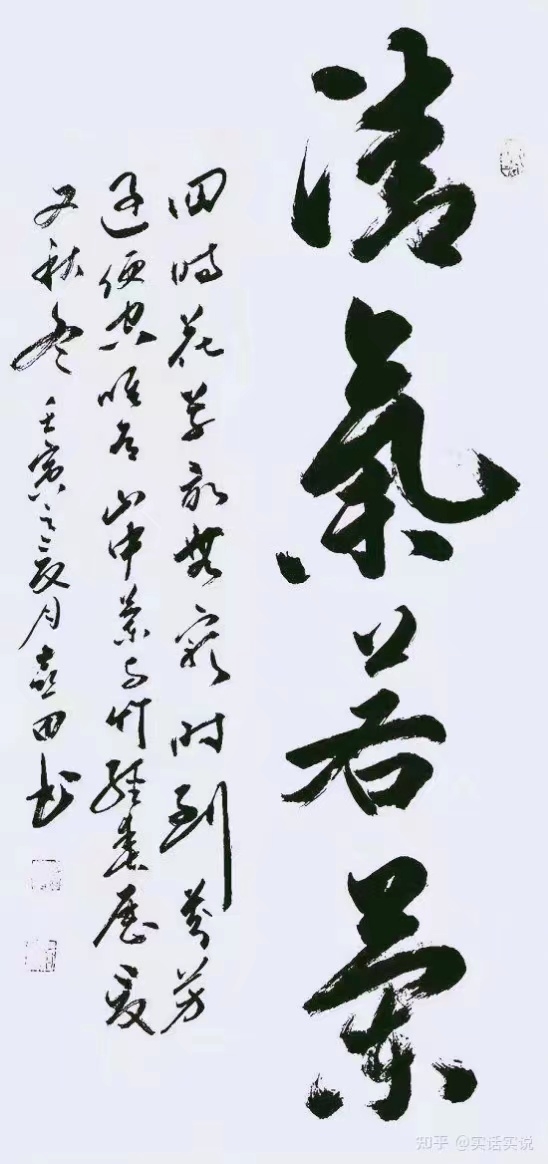 清氣若蘭
四時花草最無窮时到芬芳
過便空唯有山中蘭与竹經春歷夏
又秋冬 壬寅之亥月喜田书
知乎 @实话实说